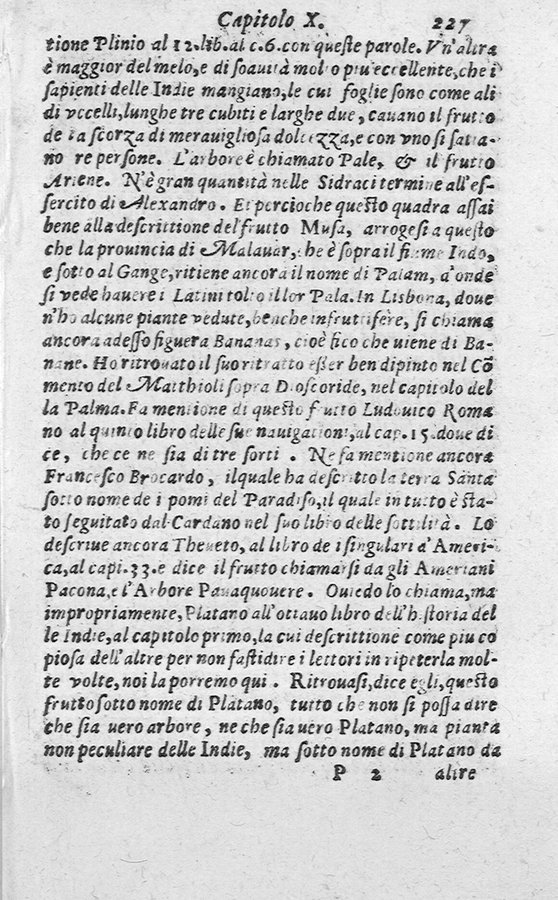 Capitolo X. 227
tione Plinio al 12.lib.al c.6.con queste parole. Vn'altra
è maggior del melo,e di soauità molto piu eccellente,che i
sapienti delle Indie mangiano,le cui foglie sono come ali
di vccelli,lunghe tre cubiti e larghe due, cauano il frutto
de la scorza di merauigliosa dolcezza,e con vno si satia-
no re persone. L'arbore è chiamato Pale, & il frutto
Ariene. N'è gran quantità nelle Sidraci termine all'es-
sercito di Alexandro. Et percioche questo quadra assai
bene alla descrittione del frutto Musa, arrogesi a questo
che la prouincia di Malauar, che è sopra il fiume Indo,
e sotto al Gange,ritiene ancora il nome di Palam, d'onde
si vede hauere i Latini tolto il lor Pala. In Lisbona, doue
n'ho alcune piante vedute, benche infruttifere, si chiama
ancora adesso figuera Bananas, cioè fico che uiene di Ba-
nane. Ho ritrouato il suo ritratto esser ben dipinto nel Cõ
mento del Matthioli sopra Dioscoride, nel capitolo del
la Palma. Fa mentione di questo frutto Ludouico Roma
no al quinto libro delle sue nauigationi,al cap.15.doue di
ce, che ce ne sia di tre sorti . Ne fa mentione ancora
Francesco Brocardo, ilquale ha descritto la terra Santa
sotto nome de i pomi del Paradiso,il quale in tutto è sta-
to seguitato dal Cardano nel suo libro delle sottilità. Lo
descriue ancora Theueto, al libro de i singulari d'Ameri-
ca,al capi.33.e dice il frutto chiamarsi da gli Ameriani
Pacona,e l'Arbore Paquouere. Ouiedo lo chiama,ma
impropriamente,Platano all'ottauo libro dell'historia del
le Indie,al capitolo primo,la cui descrittione come piu co
piosa dell'altre per non fastidire i lettori in ripeterla mol-
te volte,noi la porremo qui . Ritrouasi,dice egli,questo
frutto sotto nome di Platano, tutto che non si possa dire
che sia uero arbore, ne che sia uero Platano, ma pianta
non peculiare delle Indie, ma sotto nome di Platano da
P 2 altre